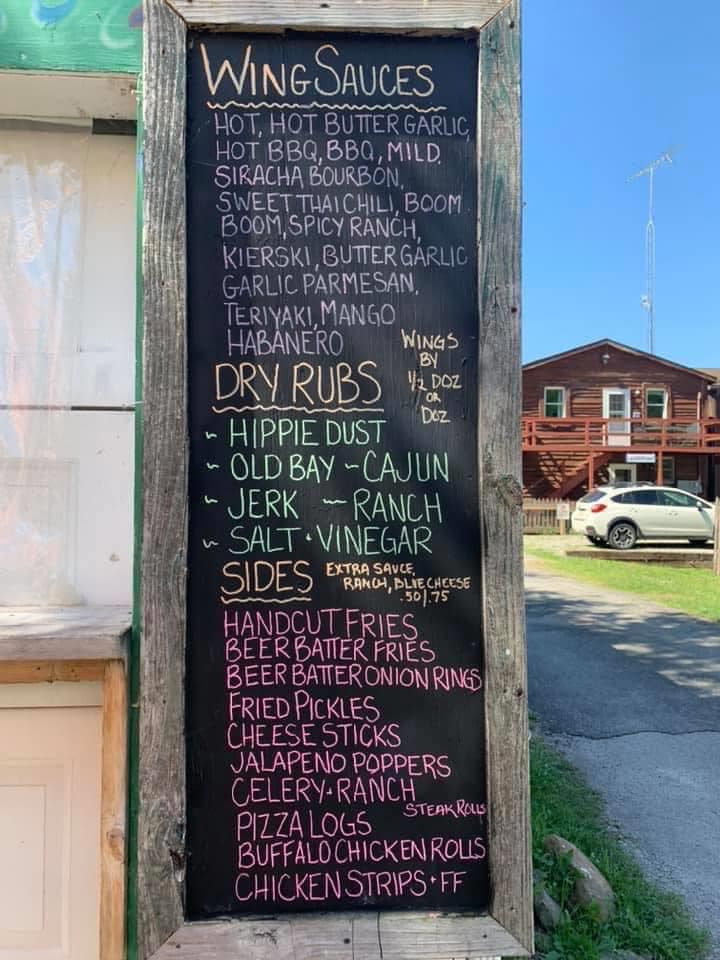 WING SAUCES
HOT, HOT BUTTER GARLIC,
HOT BBQ, BBQ, MILD,
SIRACHA BOURBON,
SWEET THAI CHILI, BOOM
BOOM, SPICY RANCH,
KIERSKI, BUTTER GARLIC
GARLIC PARMESAN,
TERIYAKI, MANGO
HABANERO
WINGS
BY
1/2 DOZ
OR
DOZ
DRY RUBS
~ HIPPIE DUST
~ OLD BAY ~ CAJUN
~ JERK ~ RANCH
~ SALT • VINEGAR
SIDES
EXTRA SAUCE,
RANCH, BLUE CHEESE
.50/.75
HANDCUT FRIES
BEER BATTER FRIES
BEER BATTER ONION RINGS
FRIED PICKLES
CHEESE STICKS
JALAPENO POPPERS
CELERY • RANCH
STEAK ROLLS
PIZZA LOGS
BUFFALO CHICKEN ROLLS
CHICKEN STRIPS • FF